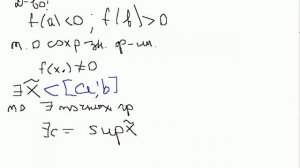 Д-во!
f(a)<0; f(b)>0
т. о сохр зн. ф-ии.
f(x₀)≠0
∃ X̃ ⊂ [a; b]
по ∃ точных гр
∃c = sup X̃